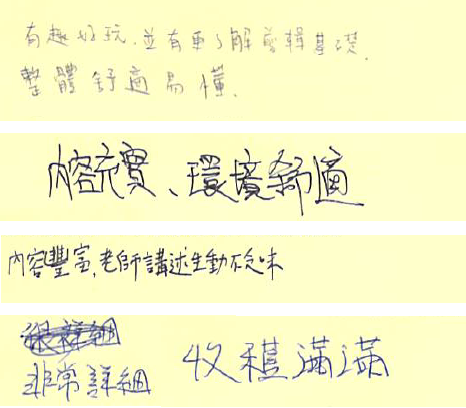 有趣好玩,並有更了解剪輯基礎,
整體舒適易懂.
內容充實、環境舒適
內容豐富,老師講述生動不乏味
非常詳細
收穫滿滿